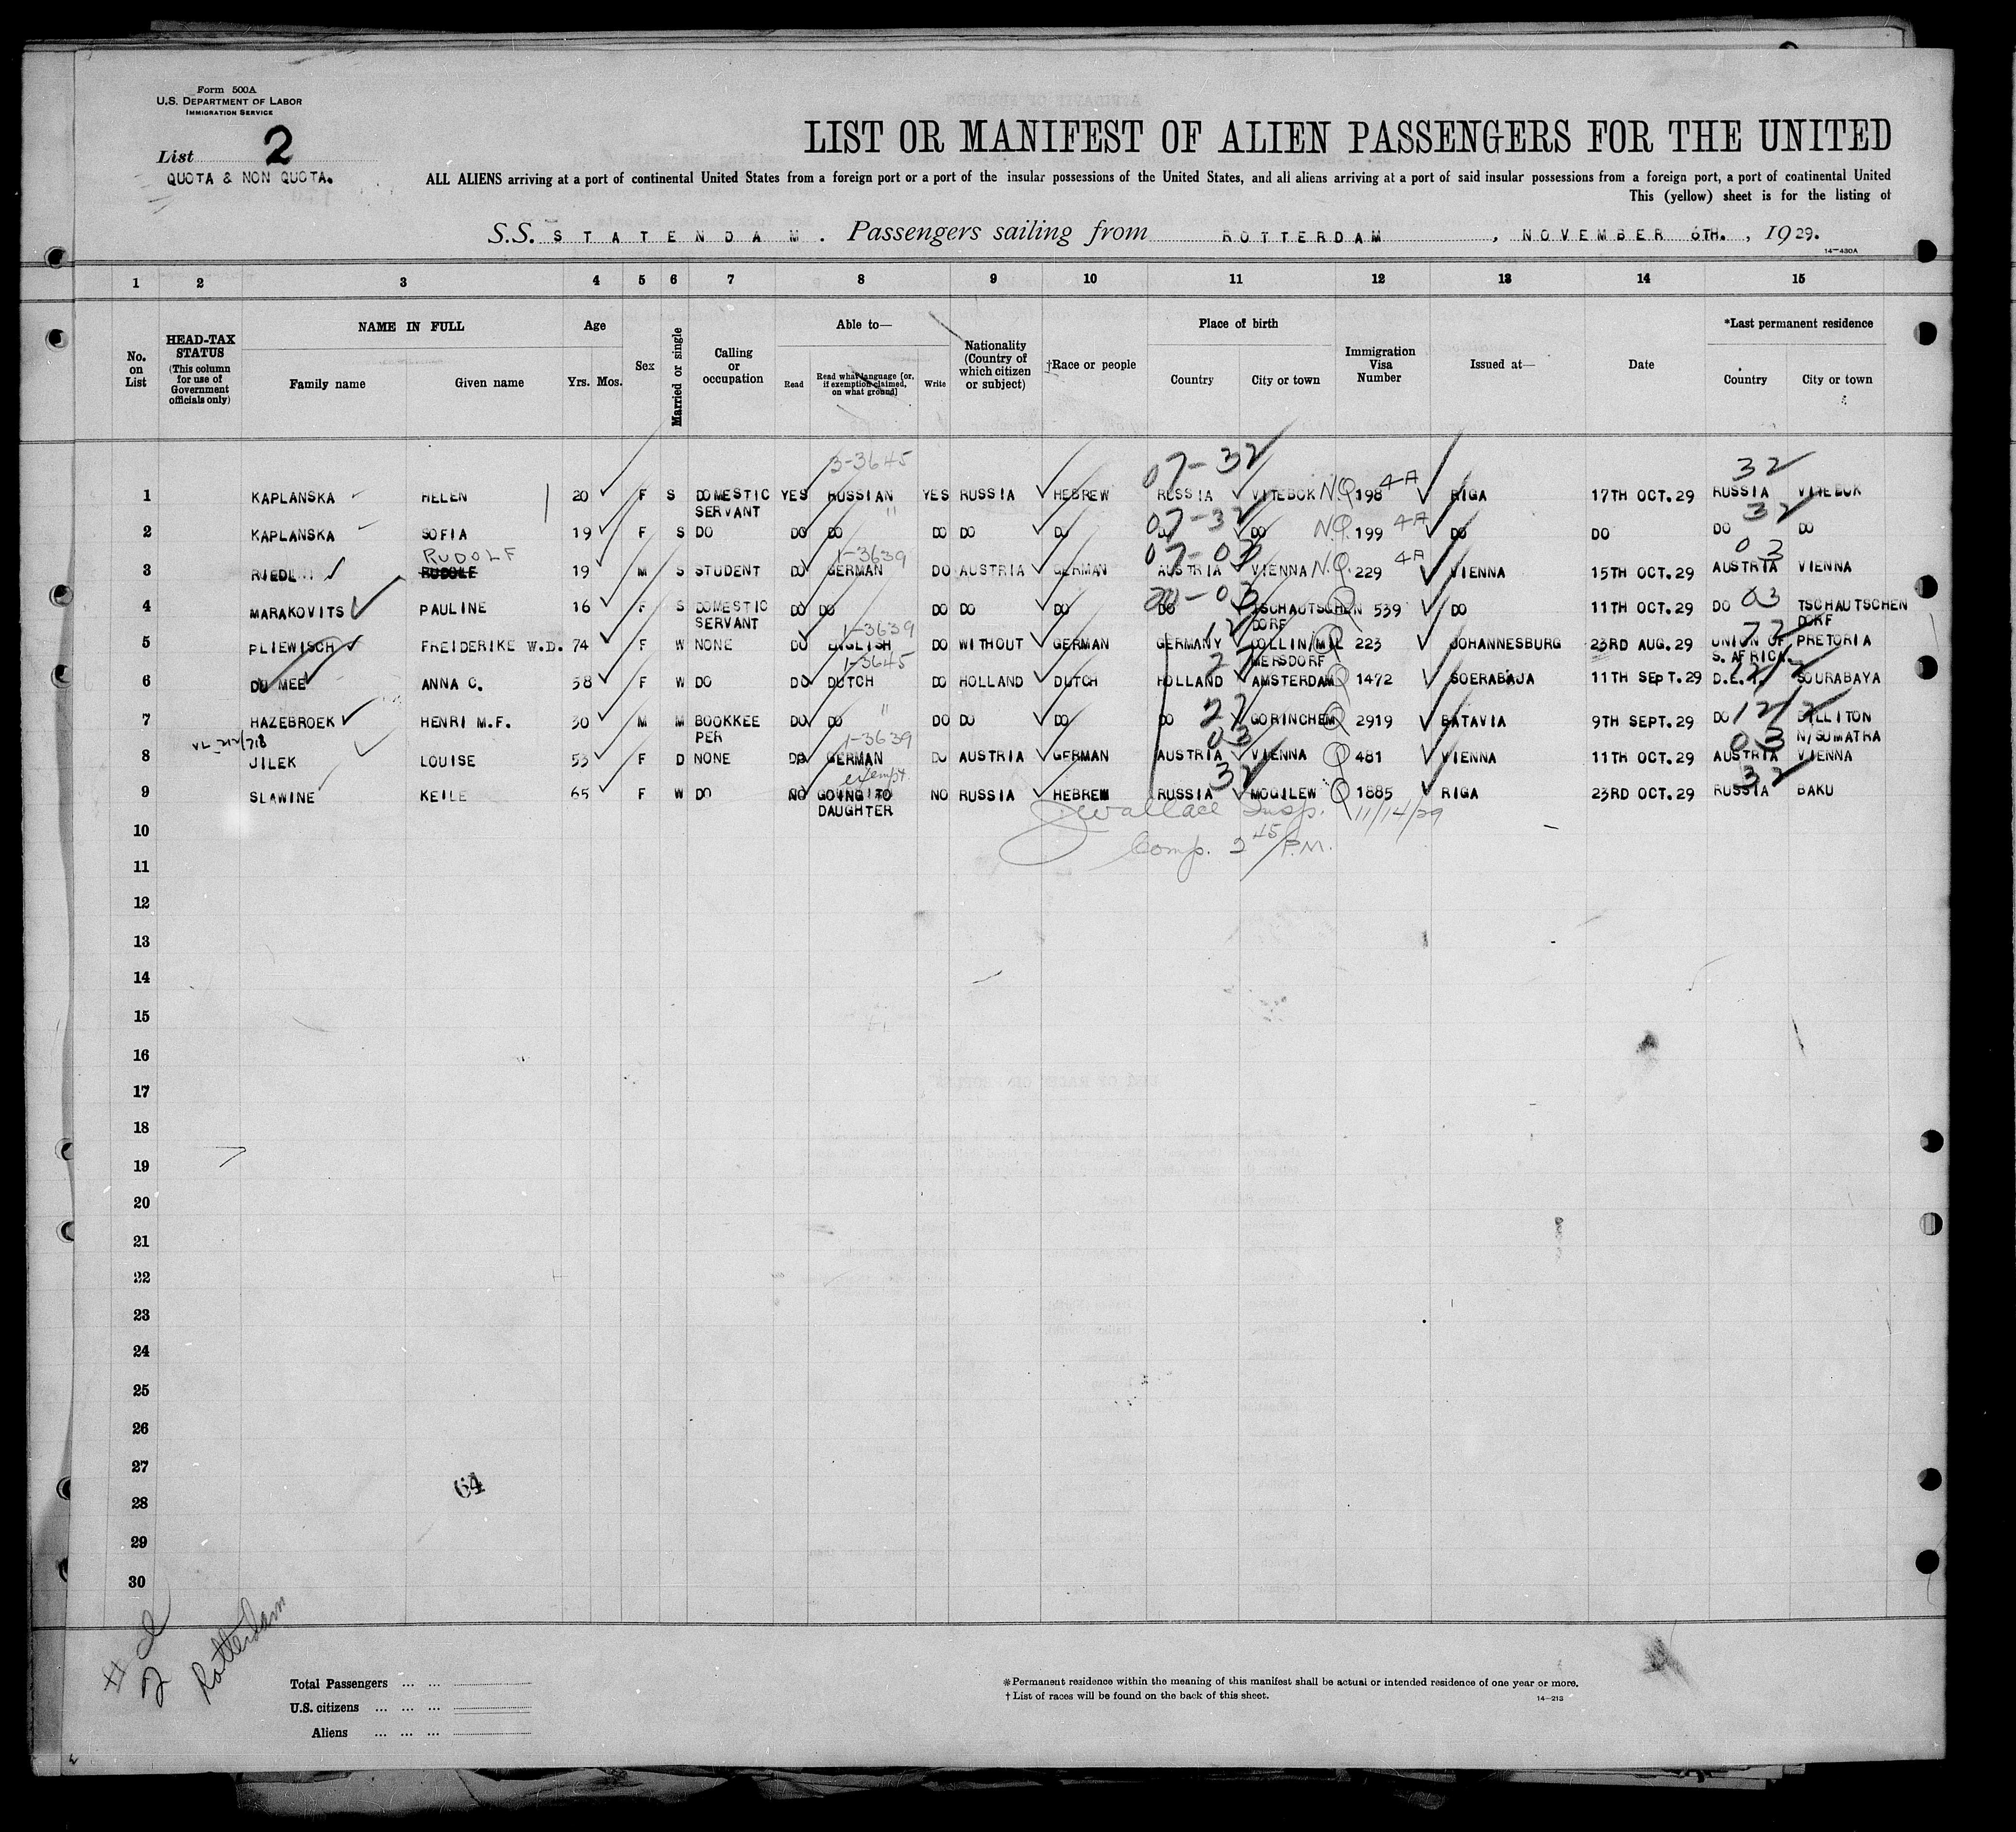 Form 500A
U.S. DEPARTMENT OF LABOR
IMMIGRATION SERVICE
List 2
QUOTA & NON QUOTA.
LIST OR MANIFEST OF ALIEN PASSENGERS FOR THE UNITED
ALL ALIENS arriving at a port of continental United States from a foreign port or a port of the insular possessions of the United States, and all aliens arriving at a port of said insular possessions from a foreign port, a port of continental United
This (yellow) sheet is for the listing of
S.S. STATENDAM. Passengers sailing from ROTTERDAM, NOVEMBER 6TH., 1929.
14-430A
1 2 3 4 5 6 7 8 9 10 11 12 13 14 15
No. on List
HEAD-TAX STATUS (This column for use of Government officials only)
NAME IN FULL
Family name Given name
Age
Yrs. Mos.
Sex
Married or single
Calling or occupation
Able to—
Read
Read what language [or, if exemption claimed, on what ground]
Write
Nationality (Country of which citizen or subject)
†Race or people
Place of birth
Country City or town
Immigration Visa Number
Issued at—
Date
*Last permanent residence
Country City or town
3-3645 07-32 32
1 KAPLANSKA HELEN 20 F S DOMESTIC YES RUSSIAN YES RUSSIA HEBREW RUSSIA VITEBOK N.Q 198 4A RIGA 17TH OCT.29 RUSSIA VITEBOK
SERVANT " 07-32 32
2 KAPLANSKA SOFIA 19 F S DO DO DO DO DO DO DO DO N.Q. 199 4A DO DO DO DO
RUDOLF 1-3639 07-03 03
3 RIEDL RUDOLF 19 M S STUDENT DO GERMAN DO AUSTRIA GERMAN AUSTRIA VIENNA N.Q. 229 4A VIENNA 15TH OCT.29 AUSTRIA VIENNA
4 MARAKOVITS PAULINE 16 F S DOMESTIC DO DO DO DO DO DO 03 TSCHAUTSCHEN Q 539 DO 11TH OCT.29 DO 03 TSCHAUTSCHEN
SERVANT DORF DORF
1-3639 12 77
5 PLIEWISCH FREIDERIKE W.D. 74 F W NONE DO ENGLISH DO WITHOUT GERMAN GERMANY COLLIN/MIL Q 223 JOHANNESBURG 23RD AUG.29 UNION OF PRETORIA
1-3645 27 MERSDORF S. AFRICA.
6 DU MEE ANNA C. 58 F W DO DO DUTCH DO HOLLAND DUTCH HOLLAND AMSTERDAM Q 1472 SOERABAJA 11TH SEPT.29 D.E.I. SOURABAYA
" 27 12/2
7 HAZEBROEK HENRI M.F. 30 M M BOOKKEE DO DO DO DO DO DO GORINCHEM Q 2919 BATAVIA 9TH SEPT.29 DO BILLITON
PER N/SUMATRA
1-3639 03 03
8 JILEK LOUISE 53 F D NONE DO GERMAN DO AUSTRIA GERMAN AUSTRIA VIENNA Q 481 VIENNA 11TH OCT.29 AUSTRIA VIENNA
exempt. 32 32
9 SLAWINE KEILE 65 F W DO NO GOING TO NO RUSSIA HEBREW RUSSIA MOGILEW Q 1885 RIGA 23RD OCT.29 RUSSIA BAKU
DAUGHTER
Wallace Insp. 11/14/29
Comp. 2 45 P.M.
10
11
12
13
14
15
16
17
18
19
20
21
22
23
24
25
26
27
64
28
29
30
# 2
Rotterdam
Total Passengers
U.S. citizens
Aliens
*Permanent residence within the meaning of this manifest shall be actual or intended residence of one year or more.
†List of races will be found on the back of this sheet.
14-213